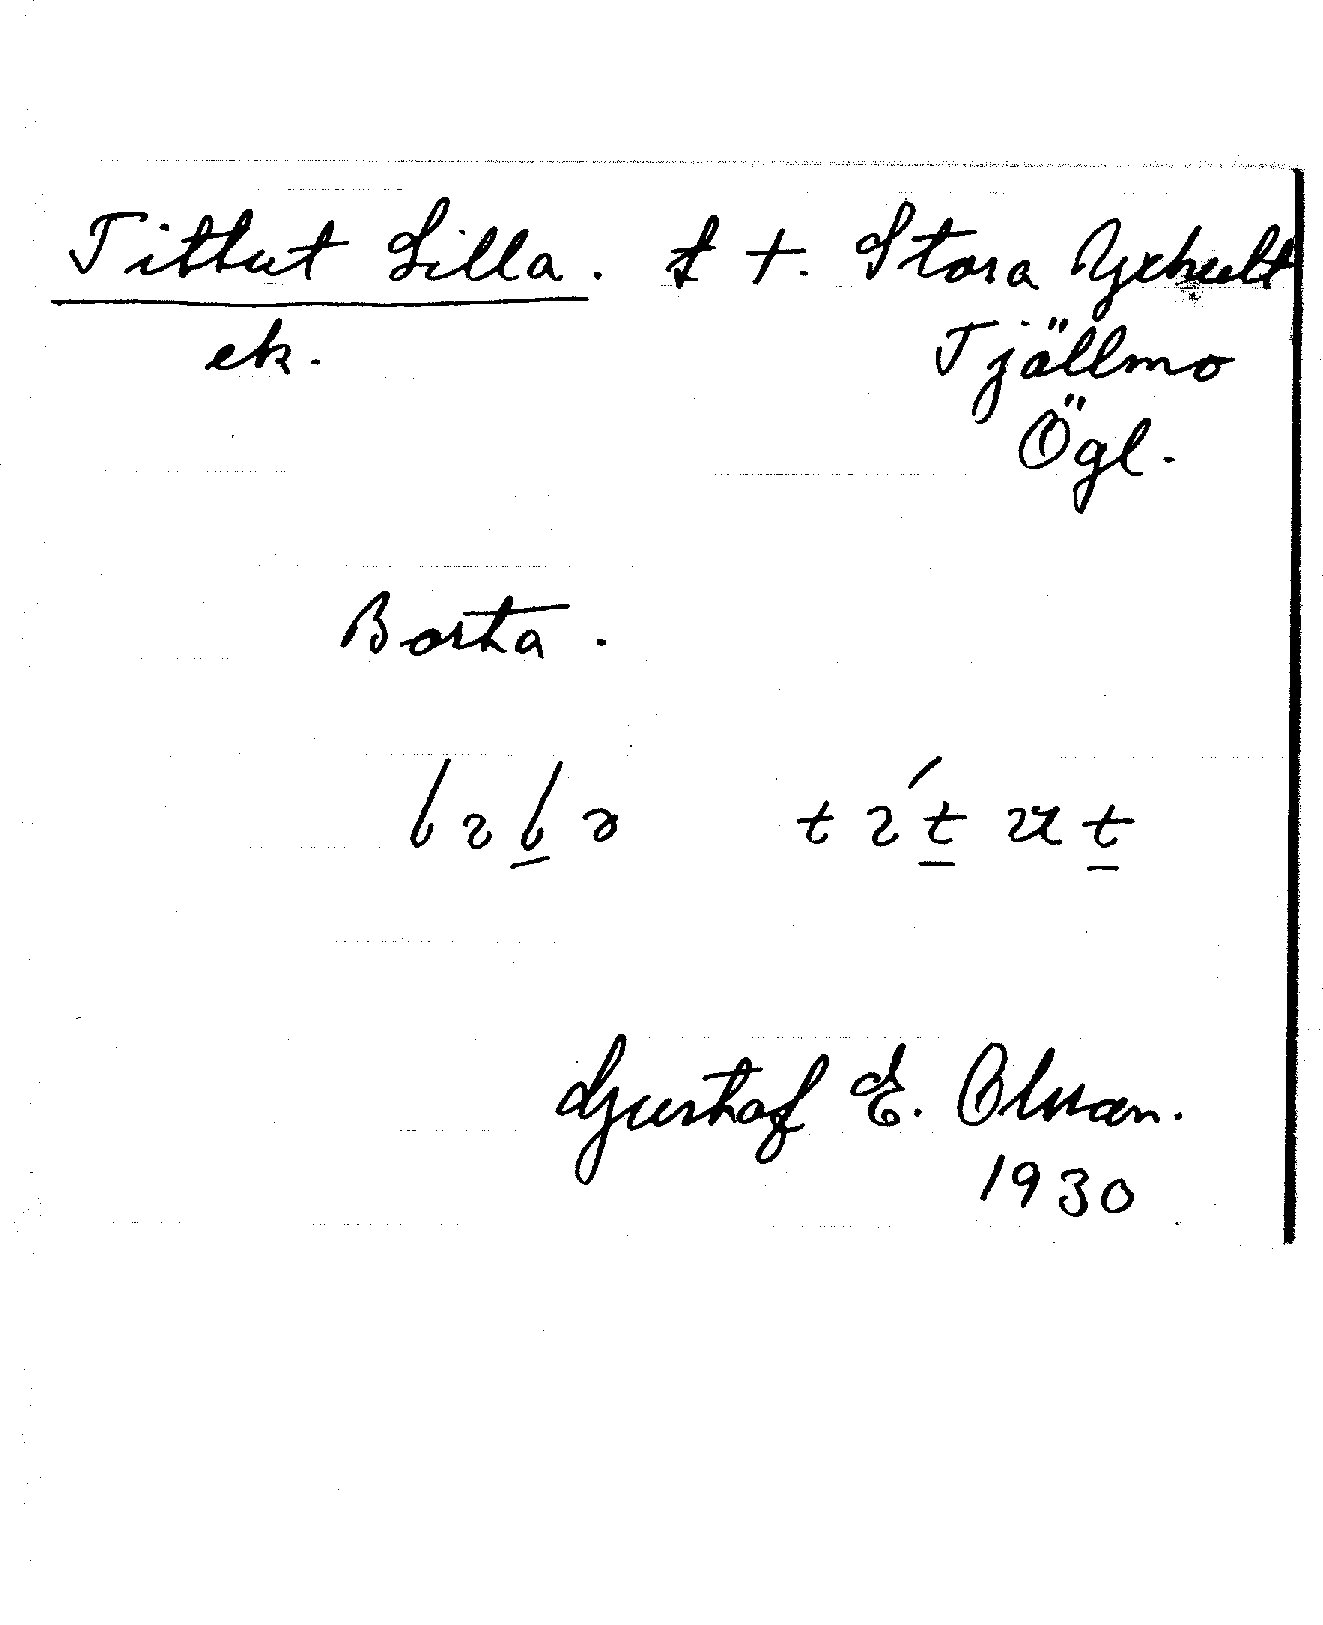 Tittut Lilla. f +. Stora Yxhult
ek. Tjällmo
Ögl.
Borta.
Gustaf E. Olsson.
1930